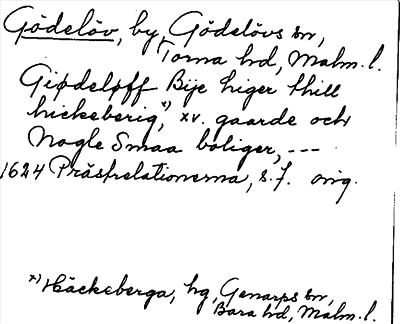 Gödelöv, by, Gödelövs sn,
Torna hd, Malm. l.
Giødeløff Bije liger thill
hickeberig, x) xv. gaarde och
Nogle Smaa boliger, ---
1624 Prästrelationerna, s. 7. orig.
x) Häckeberga, hg, Genarps sn,
Bara hd, Malm. l.